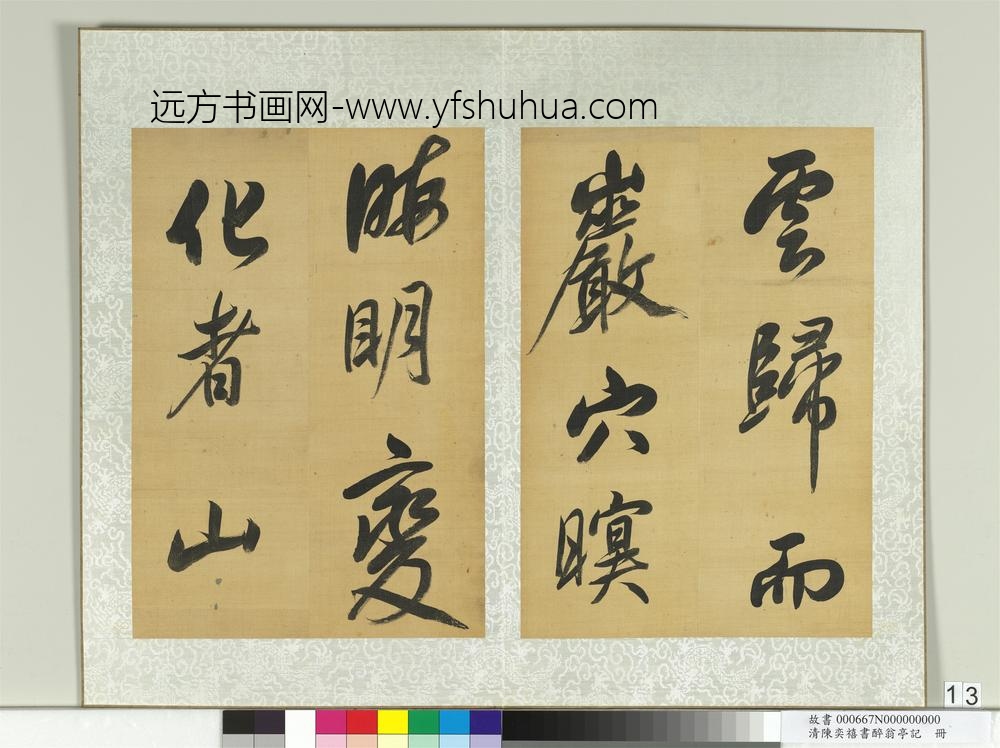 远方书画网-www.yfshuhua.com
雲歸而
巖穴暝
晦明變
化者山
13
故書 000667N000000000
清陳奕禧書醉翁亭記 冊